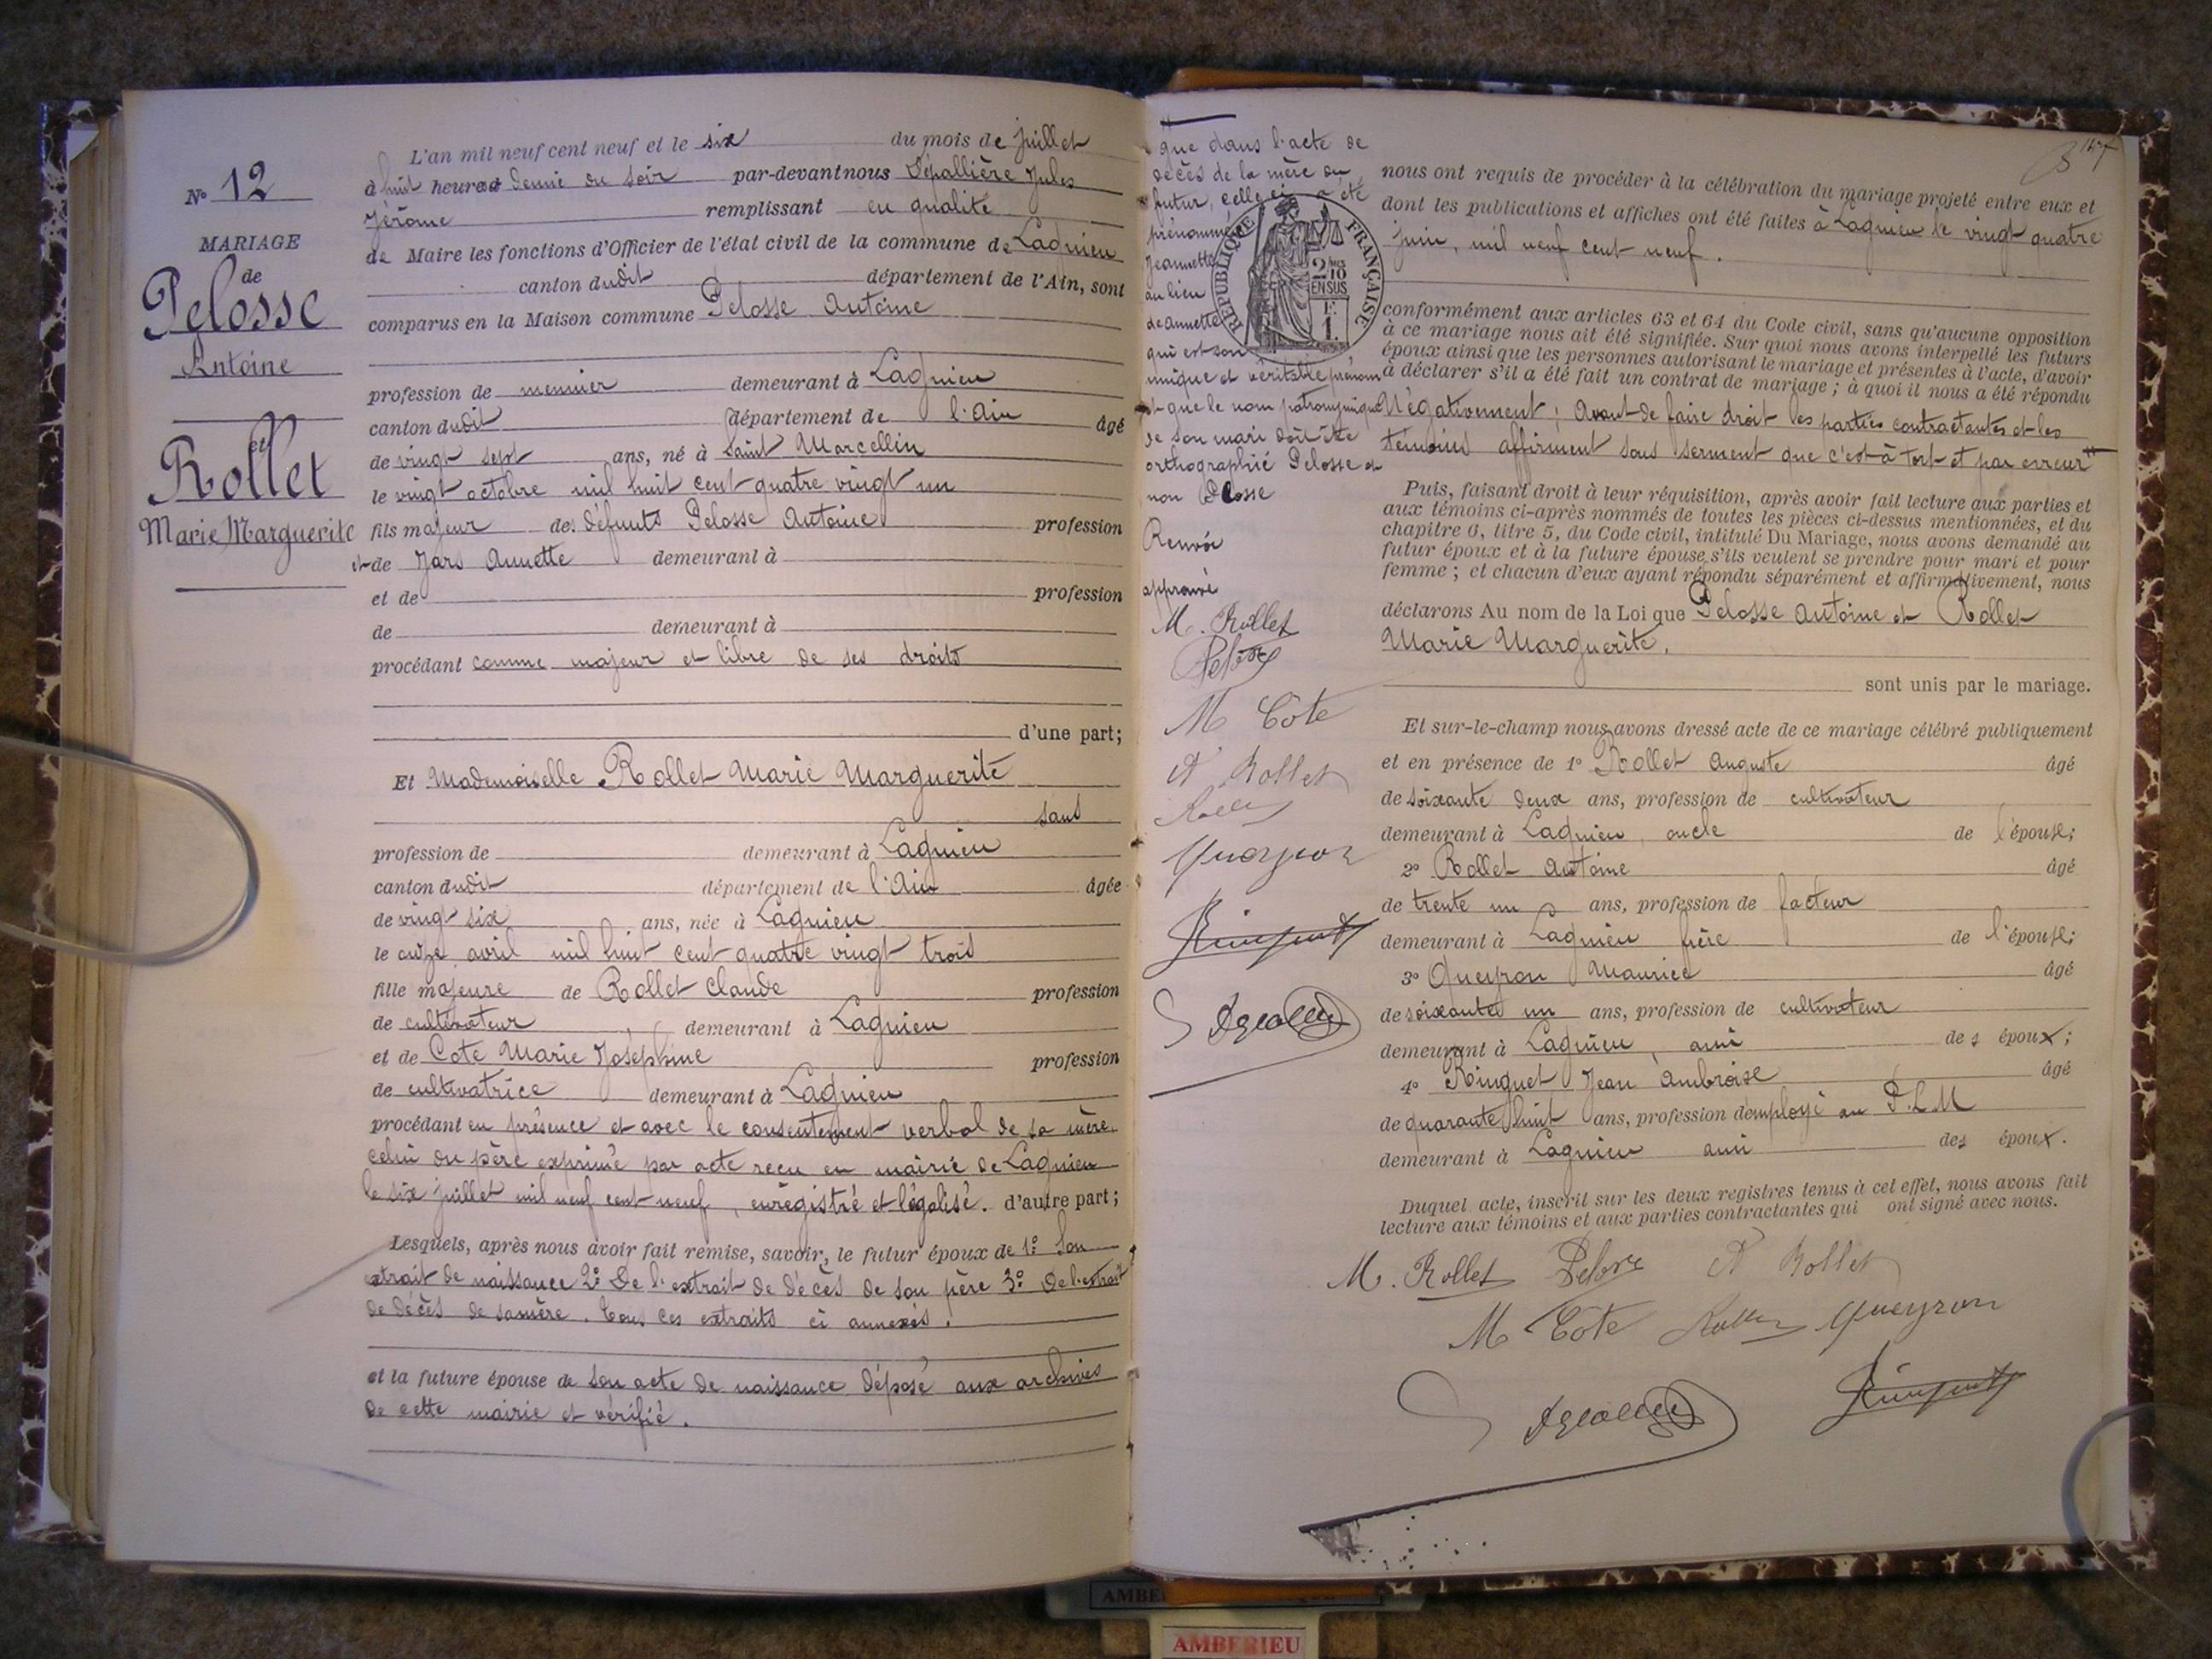 N° 12
MARIAGE
de
Pelosse
Antoine
et
Rollet
Marie Marguerite
L'an mil neuf cent neuf et le six du mois de juillet
à huit heures et demie du soir par-devant nous Dépallière Jules
Jérôme remplissant en qualité
de Maire les fonctions d'Officier de l'état civil de la commune de Lagnieu
canton dudit département de l'Ain, sont
comparus en la Maison commune Pelosse Antoine
profession de meunier demeurant à Lagnieu
canton dudit département de l'Ain âgé
de vingt sept ans, né à Saint Marcellin
le vingt octobre mil huit cent quatre vingt un
fils majeur de défunts Pelosse Antoine profession
et de Jars Annette demeurant à
et de profession
de demeurant à
procédant comme majeur et libre de ses droits
d'une part;
Et Mademoiselle Rollet Marie Marguerite
sans
profession de demeurant à Lagnieu
canton dudit département de l'Ain âgée
de vingt six ans, née à Lagnieu
le onze avril mil huit cent quatre vingt trois
fille majeure de Rollet Claude profession
de cultivateur demeurant à Lagnieu
et de Cote Marie Joséphine profession
de cultivatrice demeurant à Lagnieu
procédant en présence et avec le consentement verbal de sa mère
celui du père exprimé par acte reçu en mairie de Lagnieu
le six juillet mil neuf cent neuf, enregistré et légalisé. d'autre part;
Lesquels, après nous avoir fait remise, savoir, le futur époux de 1° Son
extrait de naissance 2° De l'extrait de décès de son père 3° De l'extrait
de décès de sa mère. Tous ces extraits ci annexés.
et la future épouse de son acte de naissance déposé aux archives
de cette mairie et vérifié.
que dans l'acte de
décès de la mère du
futur, celle ci a été
prénommée
Jeannette
au lieu
de Annette
qui est son
unique et véritable prénom
et que le nom patronymique
de son mari doit être
orthographié Pelosse et
non Plosse
Renvoi
approuvé
M. Rollet
Pelosse
M Cote
A Rollet
Rollet
Queyron
RÉPUBLIQUE FRANÇAISE
2/10
EN SUS
147
nous ont requis de procéder à la célébration du mariage projeté entre eux et
dont les publications et affiches ont été faites à Lagnieu le vingt quatre
juin, mil neuf cent neuf.
conformément aux articles 63 et 64 du Code civil, sans qu'aucune opposition
à ce mariage nous ait été signifiée. Sur quoi nous avons interpellé les futurs
époux ainsi que les personnes autorisant le mariage et présentes à l'acte, d'avoir
à déclarer s'il a été fait un contrat de mariage; à quoi il nous a été répondu
Négativement; Avant de faire droit les parties contractantes et les
témoins affirment sous serment que c'est à tort et par erreur
Puis, faisant droit à leur réquisition, après avoir fait lecture aux parties et
aux témoins ci-après nommés de toutes les pièces ci-dessus mentionnées, et du
chapitre 6, titre 5, du Code civil, intitulé Du Mariage, nous avons demandé au
futur époux et à la future épouse s'ils veulent se prendre pour mari et pour
femme; et chacun d'eux ayant répondu séparément et affirmativement, nous
déclarons Au nom de la Loi que Pelosse Antoine et Rollet
Marie Marguerite.
sont unis par le mariage.
Et sur-le-champ nous avons dressé acte de ce mariage célébré publiquement
et en présence de 1° Rollet Auguste âgé
de soixante deux ans, profession de cultivateur
demeurant à Lagnieu, oncle de l'épouse;
2° Rollet Antoine âgé
de trente un ans, profession de facteur
demeurant à Lagnieu frère de l'épouse;
3° Queyron Maurice âgé
de soixante un ans, profession de cultivateur
demeurant à Lagnieu, ami des époux;
4° Ringuet Jean Ambroise âgé
de quarante huit ans, profession d'employé au P.L.M
demeurant à Lagnieu ami des époux.
Duquel acte, inscrit sur les deux registres tenus à cet effet, nous avons fait
lecture aux témoins et aux parties contractantes qui ont signé avec nous.
M. Rollet Pelosse A Rollet
M Cote Rollet Queyron
AMBERIEU